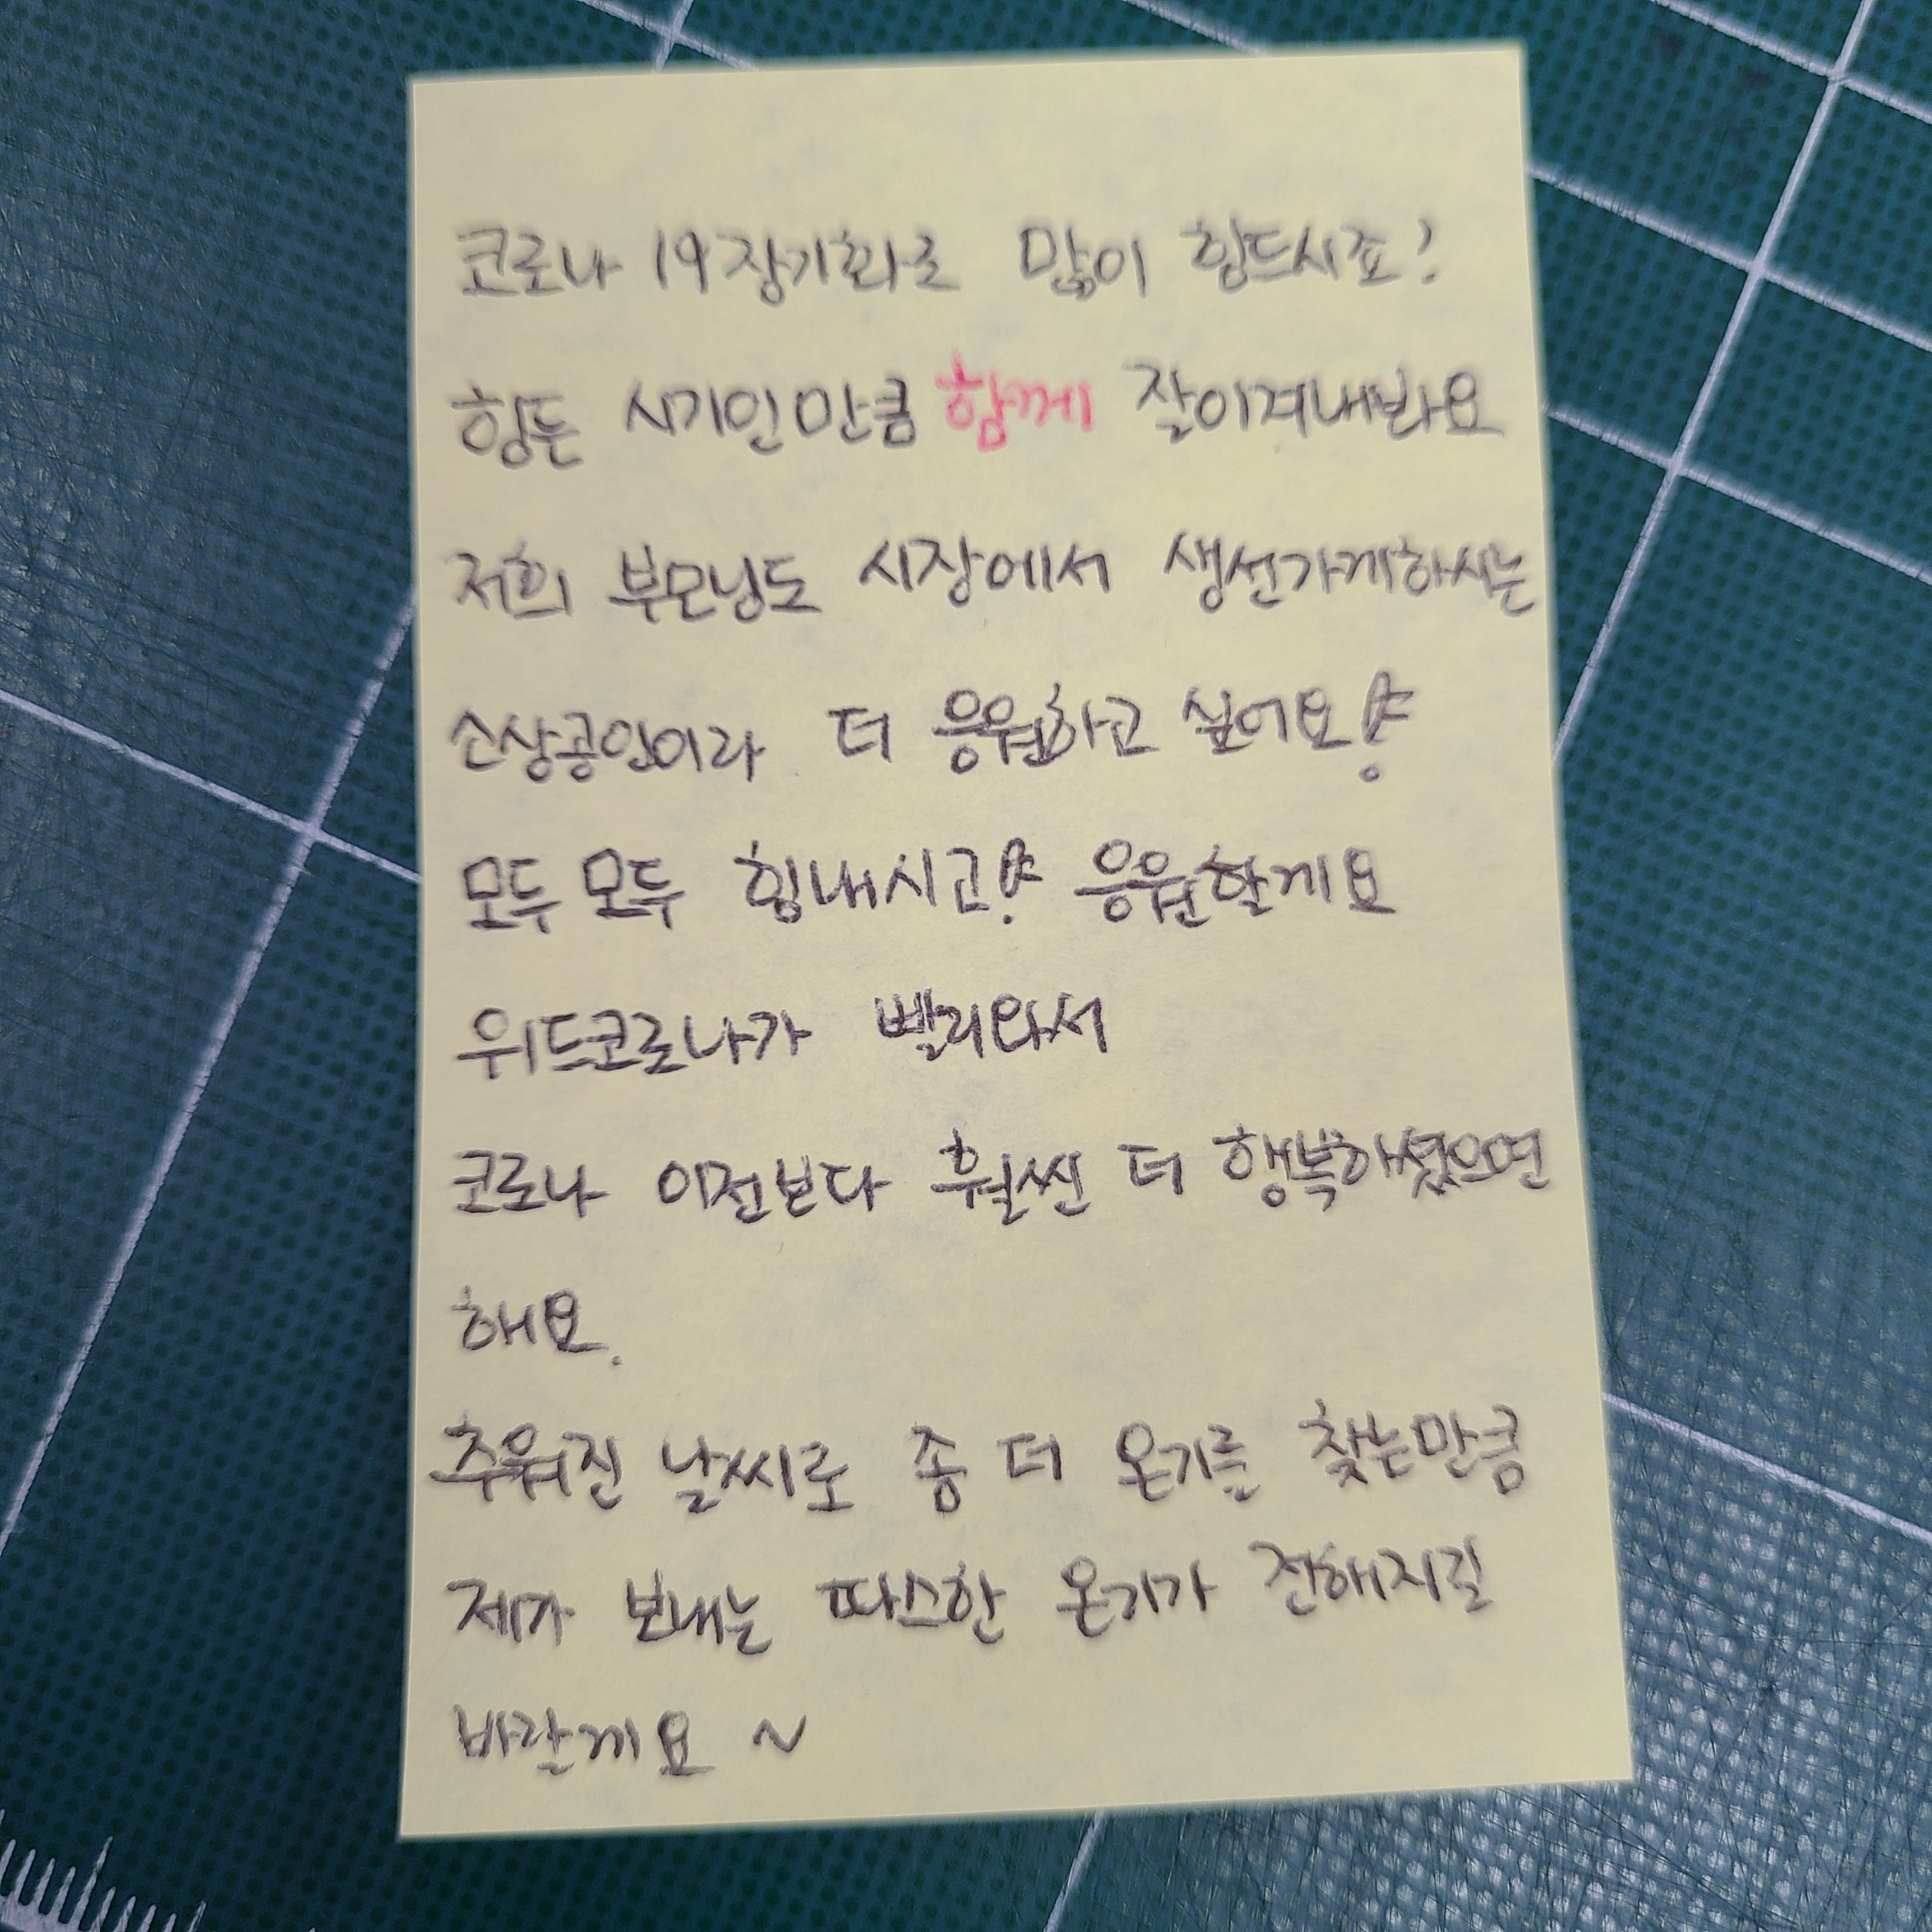 코로나 19 장기화로 많이 힘드시죠!
힘든 시기인만큼 함께 잘이겨내봐요
저희 부모님도 시장에서 생선가게하시는
소상공인이라 더 응원하고 싶어요!
모두 모두 힘내시고! 응원할게요
위드코로나가 빨리와서
코로나 이전보다 훨씬 더 행복하셨으면
해요.
추워진 날씨로 좀 더 온기를 찾는만큼
제가 보내는 따스한 온기가 전해지길
바랄께요 ~